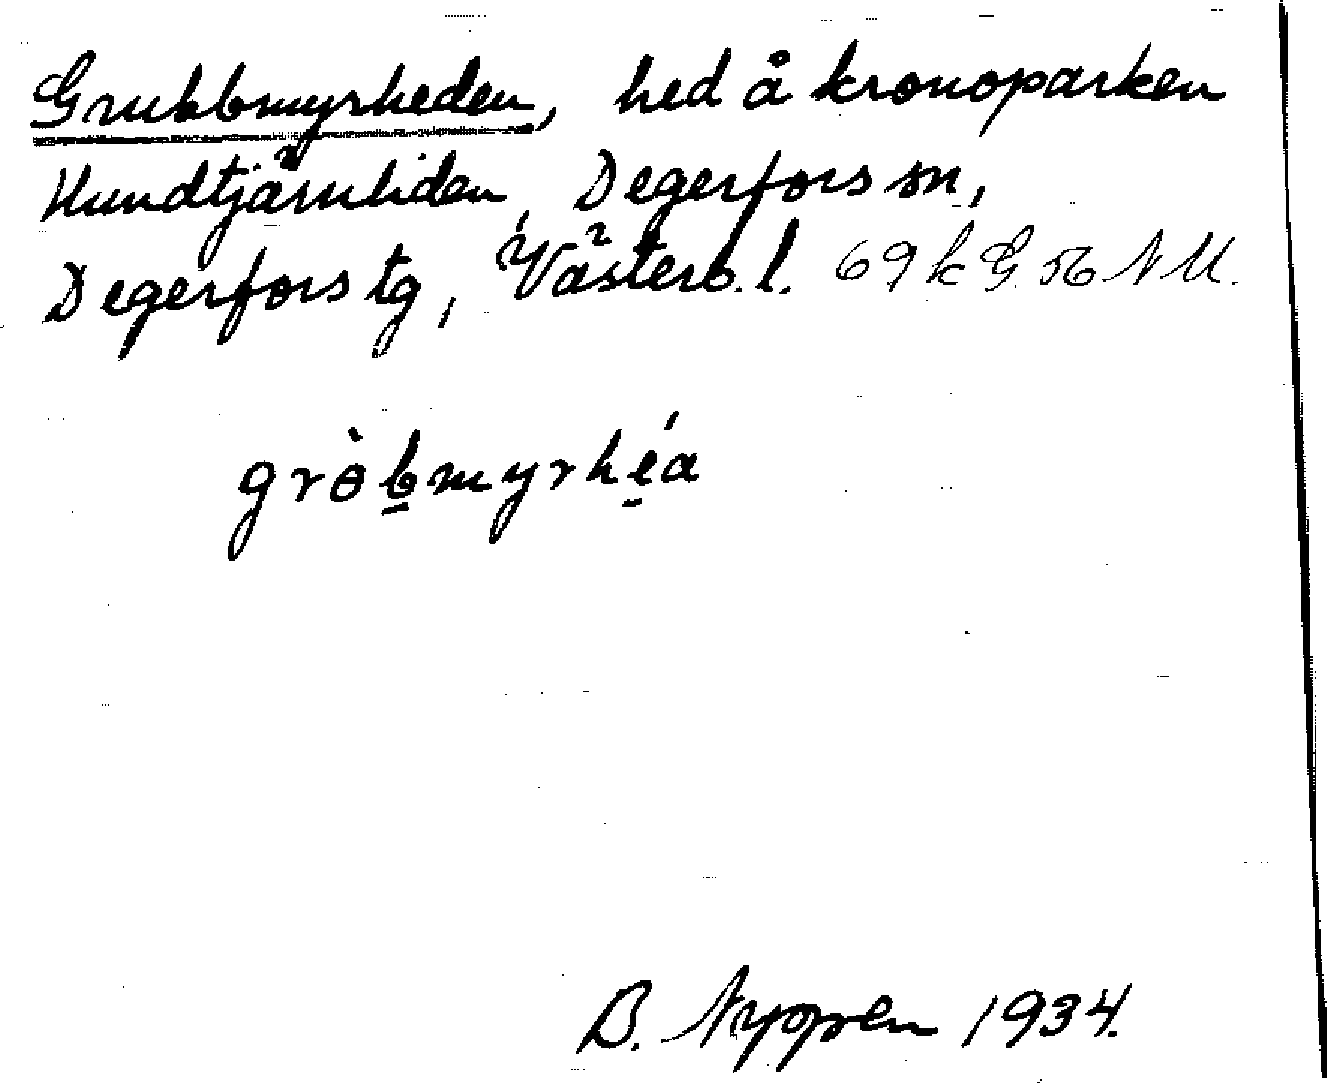 Grubbmyrheden, hed å kronoparken
Hundtjärnliden, Degerfors sn,
Degerfors tg, Västerb. l. 69 k G 56 N M.
gròb̲myrhé̲a
B. Nyppen 1934.